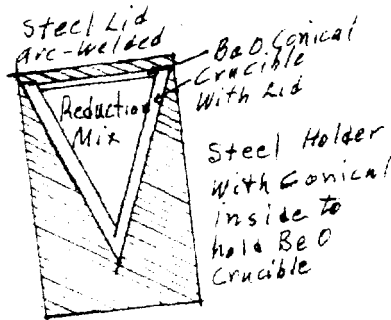 Steel Lid
arc-welded
BeO Conical
Crucible
With Lid
Reduction
Mix
Steel Holder
With Conical
inside to
hold BeO
Crucible